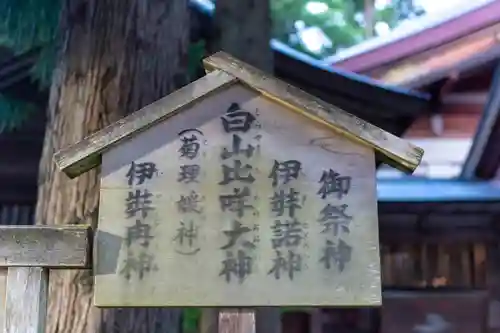 御祭神
伊弉諾神
白山比咩大神
(菊理媛神)
伊弉冉神